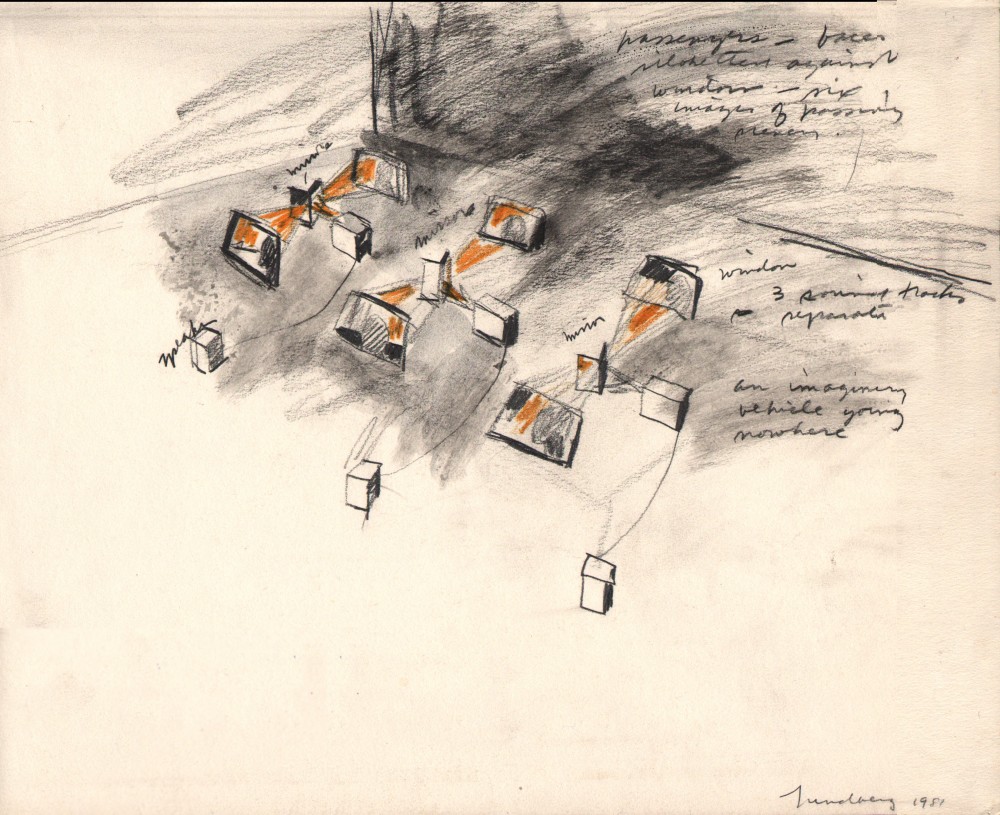 passengers - faces
silohetted against
windows - six
images of passing
scenery.
mirror
mirrors
window
3 sound tracks
- separate
speaker
mirror
an imaginery
vehicle going
nowhere
Lundberg 1981